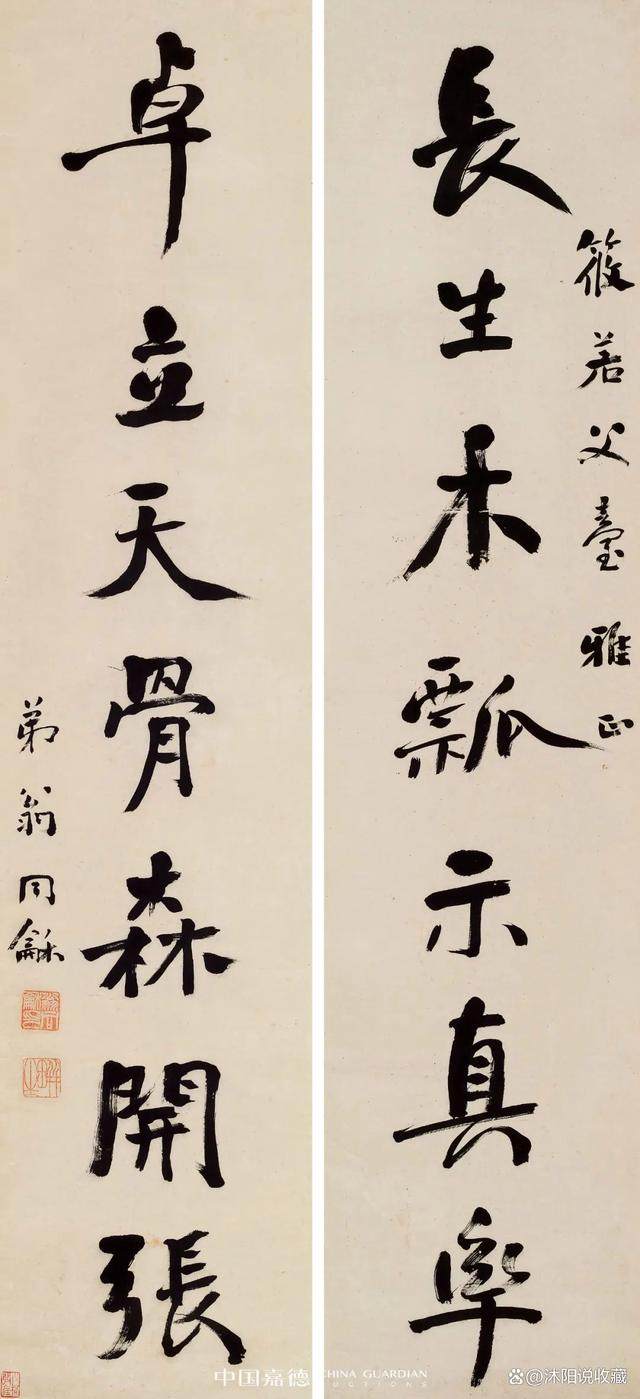 筱若父臺雅正
長生木瓢示真率
卓立天骨森開張
弟翁同龢
中国嘉德 CHINA GUARDIAN
AUCTIONS
沐阳说收藏